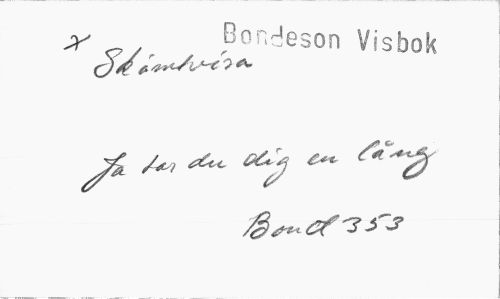 Bondeson Visbok
x Skämtvisa
Ja tar du dig en lång
Bond 353